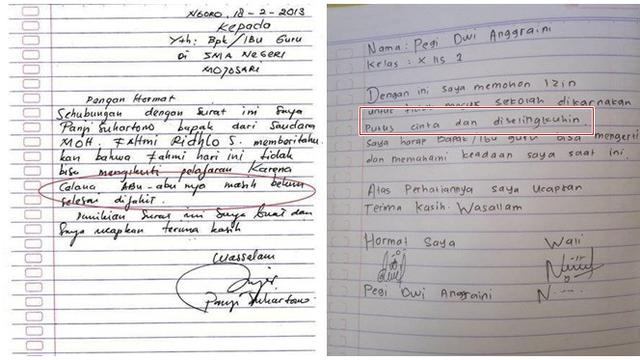 NGORO, 18-2-2013
Kepada
Yth: Bpk/Ibu Guru
Di SMA NEGERI
MOJOSARI
Dengan Hormat
Sehubungan dengan surat ini saya
Panji Suhartono bapak dari saudara
MOH. FAHMI RIDHLO S. memberitahu
kan bahwa Fahmi hari ini tidak
bisa mengikuti pelajaran Karena
Celana Abu-abu nya masih belum
selesai dijahit.
Demikian surat ini saya buat dan
saya ucapkan terima kasih
Wassalam
Panji Suhartono
Nama: Pegi Dwi Anggraini
Kelas: X IIS 2
Dengan ini saya memohon izin
untuk tidak masuk sekolah dikarnakan
Putus cinta dan diselingkuhin.
Saya harap Bapak/Ibu guru bisa mengerti
dan memahami keadaan saya saat ini.
Atas Perhatiannya saya ucapkan
Terima kasih. Wasallam
Hormat Saya Wali
Pegi Dwi Anggraini N....